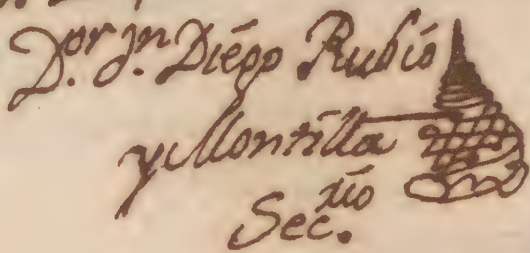 D.or Jn. Diégo Rubió
y Montilla
Sec.rio